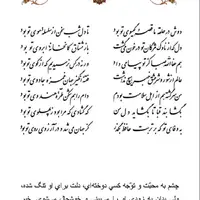 دوش در حلقهٔ ما قصهٔ گیسوی تو بود
تا دل شب سخن از سلسلهٔ موی تو بود
دل که از ناوک مژگان تو در خون می‌گشت
باز مشتاق کمانخانهٔ ابروی تو بود
عالم از شور و شر عشق خبر هیچ نداشت
فتنه‌انگیز جهان غمزهٔ جادوی تو بود
من سرگشته هم از اهل سلامت بودم
دام راهم شکن طرهٔ هندوی تو بود
بگشا بند قبا تا بگشاید دل من
که گشادی که مرا بود ز پهلوی تو بود
به وفای تو که بر تربت حافظ بگذر
کز جهان می‌شد و در آرزوی روی تو بود
چشم به محبّت و توجّه کسي دوخته‌اي، دلت براي او تنگ شده،